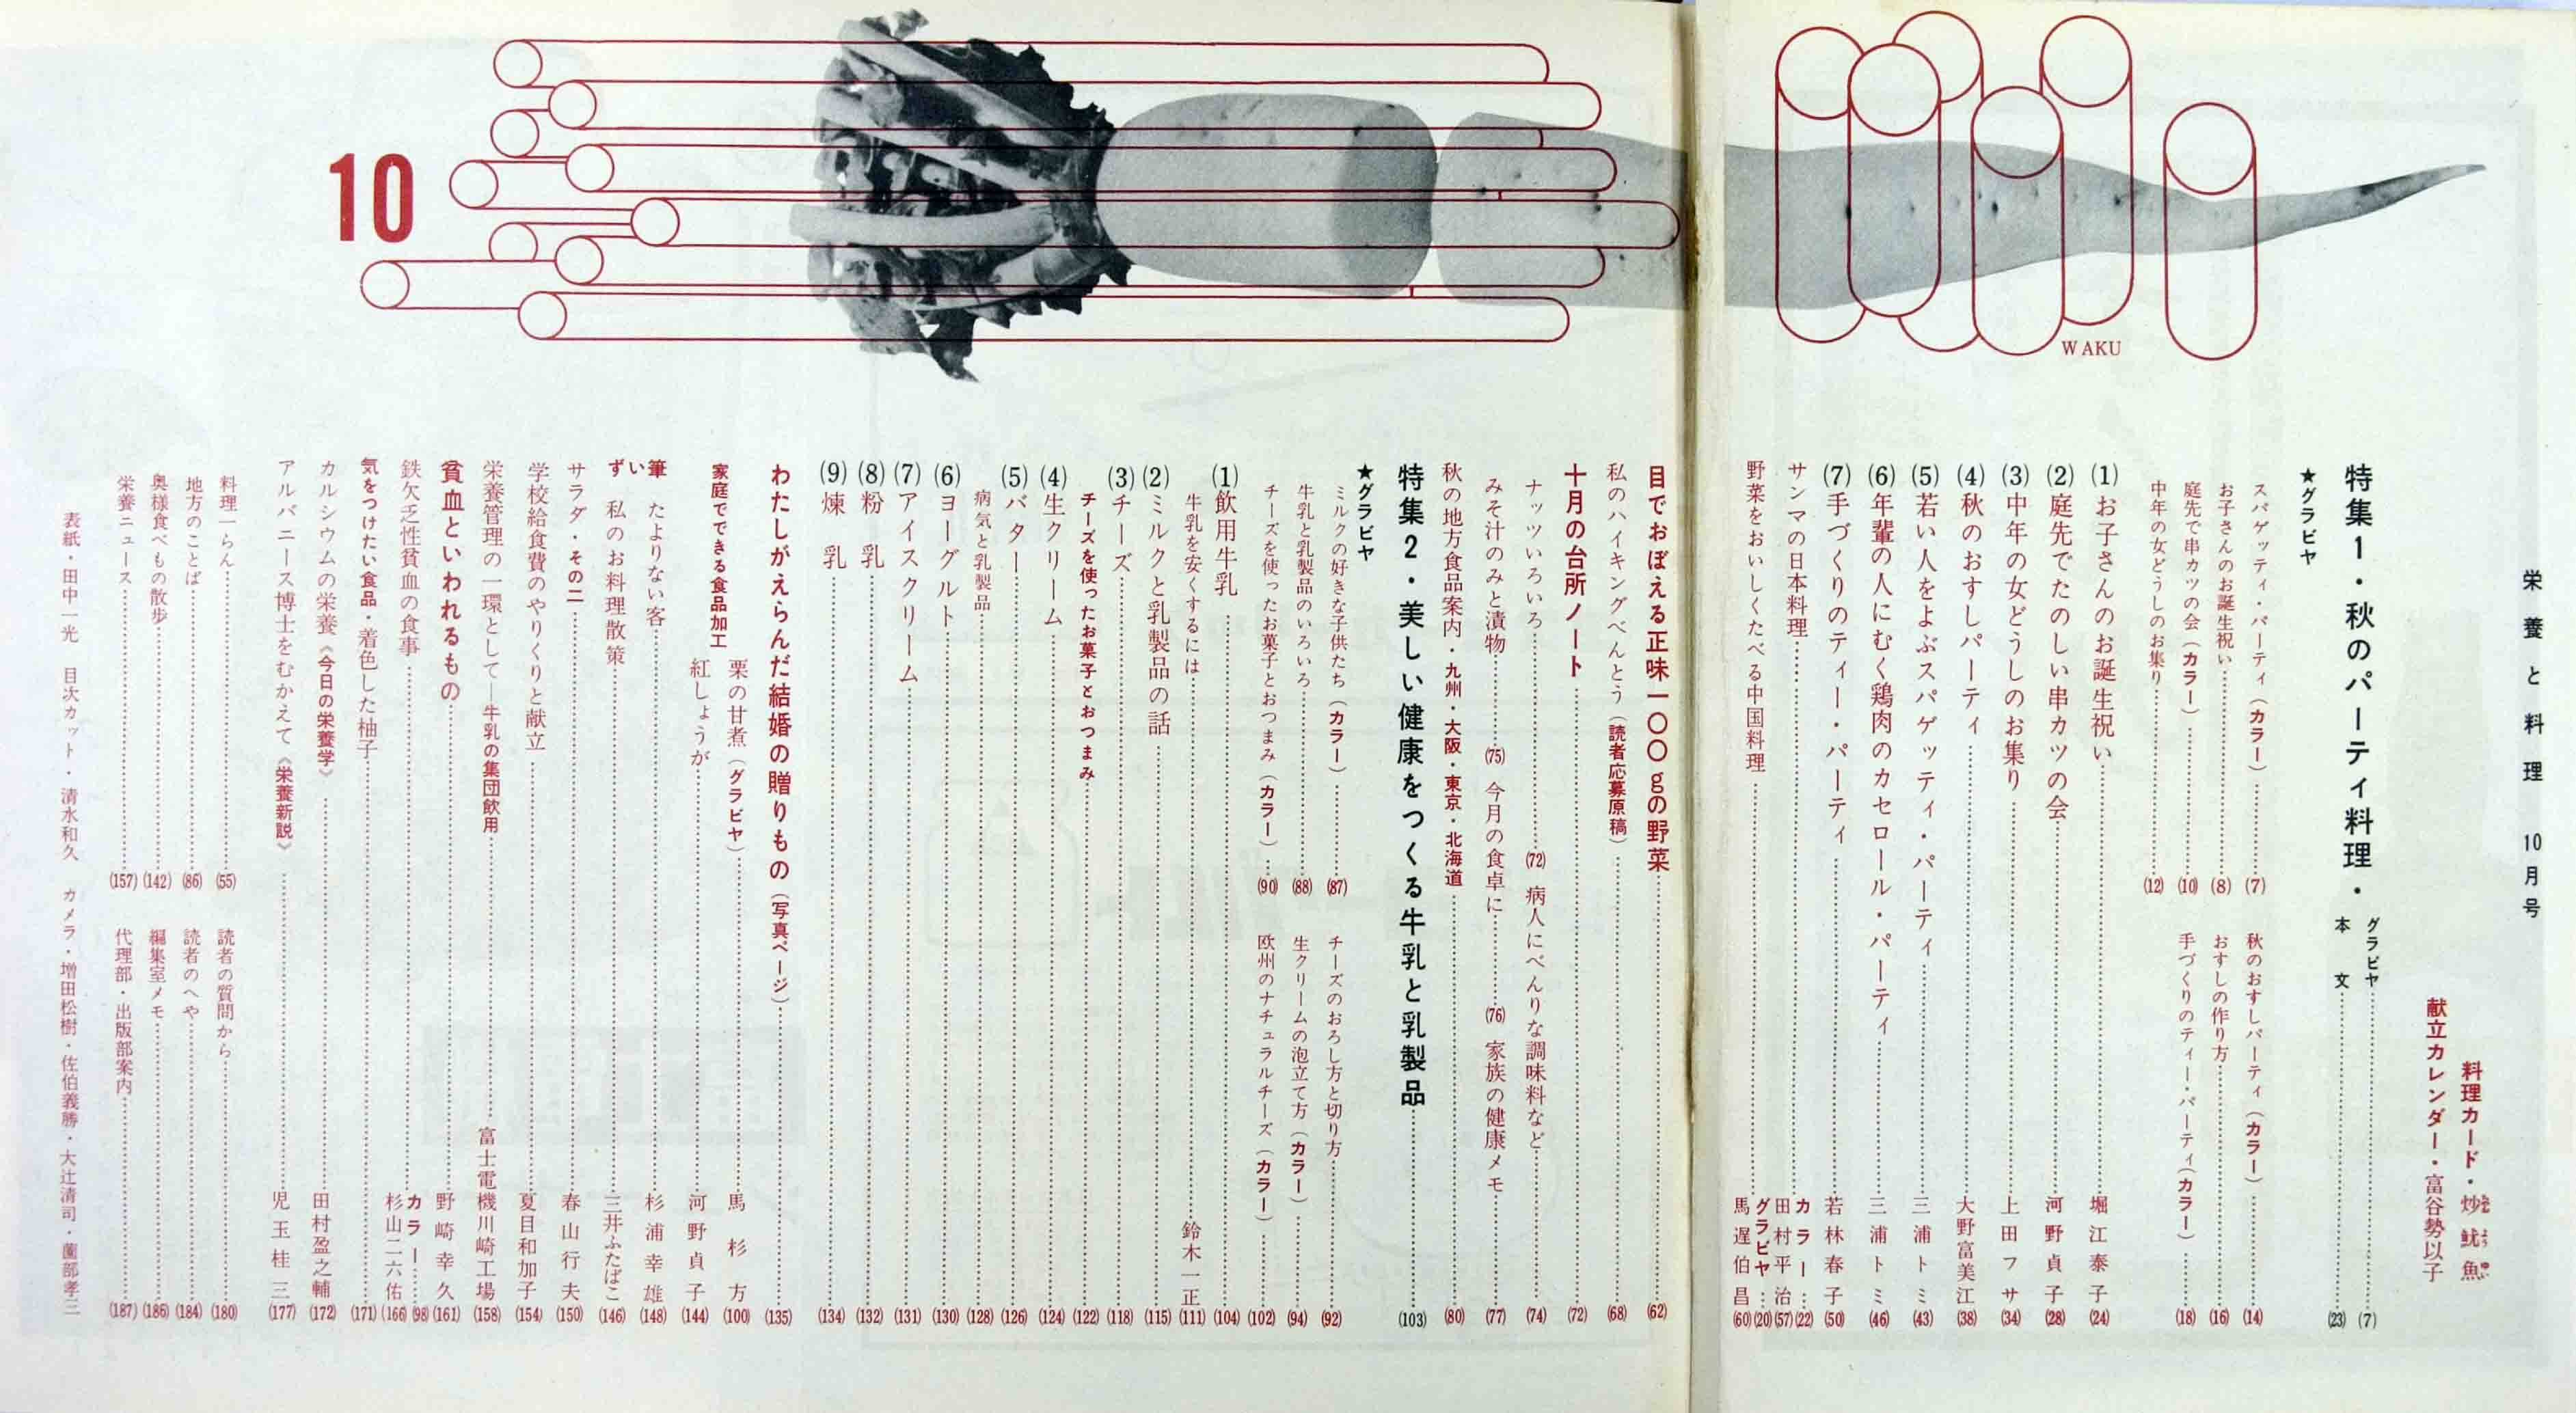 栄養と料理 10月号
料理カード・炒魷魚
献立カレンダー・富谷勢以子
特集1・秋のパーティ料理・
グラビヤ (7)
本文 (23)
★グラビヤ
スパゲッティ・パーティ(カラー) (7)
秋のおすしパーティ(カラー) (14)
お子さんのお誕生祝い (8)
おすしの作り方 (16)
庭先で串カツの会(カラー) (10)
手づくりのティー・パーティ(カラー) (18)
中年の女どうしのお集り (12)
(1) お子さんのお誕生祝い 堀江泰子 (24)
(2) 庭先でたのしい串カツの会 河野貞子 (28)
(3) 中年の女どうしのお集り 上田フサ (34)
(4) 秋のおすしパーティ 大野富美江 (38)
(5) 若い人をよぶスパゲッティ・パーティ 三浦トミ (43)
(6) 年輩の人にむく鶏肉のカセロール・パーティ 三浦トミ (46)
(7) 手づくりのティー・パーティ 若林春子 (50)
サンマの日本料理 カラー (22) 田村平治 (57)
野菜をおいしくたべる中国料理 グラビヤ (20) 馬遅伯昌 (60)
目でおぼえる正味一〇〇gの野菜 (62)
私のハイキングべんとう(読者応募原稿) (68)
十月の台所ノート (72)
ナッツいろいろ (72) 病人にべんりな調味料など (74)
みそ汁のみと漬物 (75) 今月の食卓に (76) 家族の健康メモ (77)
秋の地方食品案内・九州・大阪・東京・北海道 (80)
特集2・美しい健康をつくる牛乳と乳製品 (103)
★グラビヤ
ミルクの好きな子供たち(カラー) (87)
チーズのおろし方と切り方 (92)
牛乳と乳製品のいろいろ (88)
生クリームの泡立て方(カラー) (94)
チーズを使ったお菓子とおつまみ(カラー) (90)
欧州のナチュラルチーズ(カラー) (102)
(1) 飲用牛乳 (104)
牛乳を安くするには 鈴木一正 (111)
(2) ミルクと乳製品の話 (115)
(3) チーズ (118)
チーズを使ったお菓子とおつまみ (122)
(4) 生クリーム (124)
(5) バター (126)
病気と乳製品 (128)
(6) ヨーグルト (130)
(7) アイスクリーム (131)
(8) 粉乳 (132)
(9) 煉乳 (134)
わたしがえらんだ結婚の贈りもの(写真ページ) (135)
家庭でできる食品加工
栗の甘煮(グラビヤ) 馬杉方 (100)
紅しょうが 河野貞子 (144)
ずい筆
たよりない客 杉浦幸雄 (148)
私のお料理散策 三井ふたばこ (146)
サラダ・その二 春山行夫 (150)
学校給食費のやりくりと献立 夏目和加子 (154)
栄養管理の一環として―牛乳の集団飲用 富士電機川崎工場 (158)
貧血といわれるもの 野崎幸久 (161)
鉄欠乏性貧血の食事 カラー (98) 杉山二六佑 (166)
気をつけたい食品・着色した柚子 (171)
カルシウムの栄養《今日の栄養学》 田村盈之輔 (172)
アルバニース博士をむかえて《栄養新説》 児玉桂三 (177)
料理一らん (55)
読者の質問から (180)
地方のことば (86)
読者のへや (184)
奥様食べもの散歩 (142)
編集室メモ (186)
栄養ニュース (157)
代理部・出版部案内 (187)
表紙・田中一光 目次カット・清水和久 カメラ・増田松樹・佐伯義勝・大辻清司・薗部孝三
10
WAKU